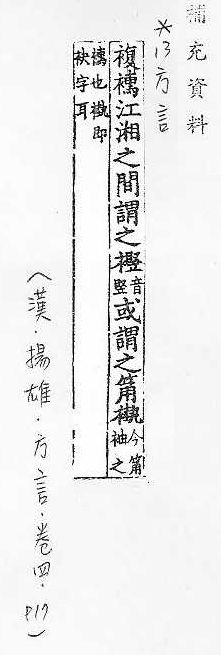 補充資料
*13方言
複襦江湘之間謂之音竪或謂之筩褹今筩袖之
襦也褹即
袂字耳
（漢．揚雄．方言．卷四．P17）